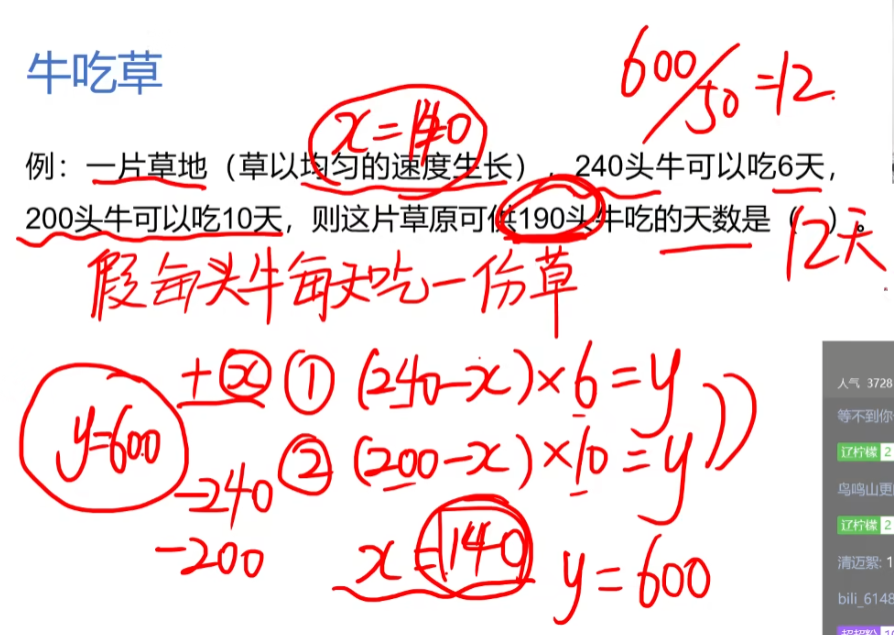 牛吃草
600/50=12
x=140
例：一片草地（草以均匀的速度生长），240头牛可以吃6天，
200头牛可以吃10天，则这片草原可供190头牛吃的天数是（ ）。
12天
假每头牛每天吃一份草
+x ① (240-x)×6=y
y=600
② (200-x)×10=y
-240
-200
x=140
y=600
人气 3728
等不到你
辽柠檬 2
鸟鸣山更
辽柠檬 2
清迈絮: 1
bili_6148